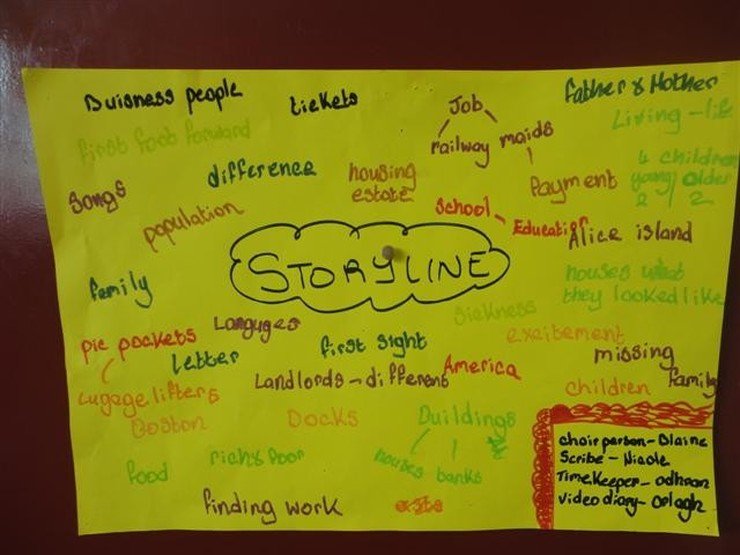 Buisness people
tickets
Father & Mother
Living - life
Job
first foot forward
railway maids
difference
housing
estate
Payment
4 children
young older
2 2
Songs
population
School - Education
Alice island
STORYLINE
family
houses what
they looked like
sickness
Languges
pic pockets
letter
first sight
excitement
missing
family
America
Landlords - different
children
Lugage lifters
Boston
Docks
Buildings
houses banks
food
rich & Poor
finding work
chair person - Blaine
Scribe - Nicole
Time Keeper - odhran
video diary - Orlagh